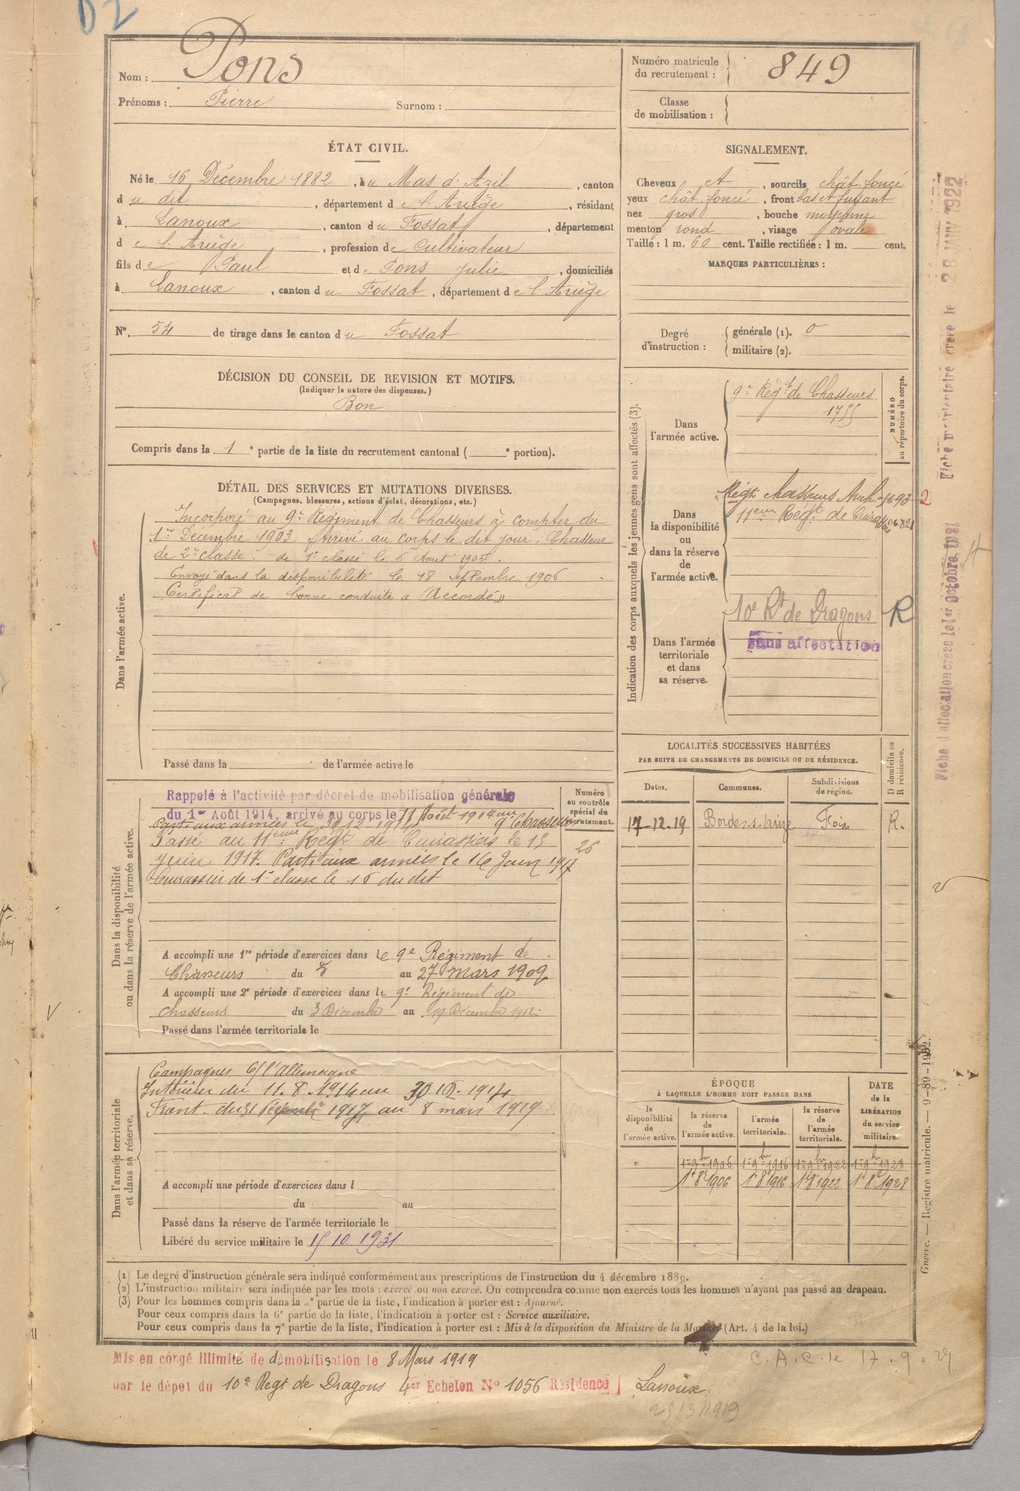 D2
Nom : Pons
Prénoms : Pierre Surnom :
Numéro matricule du recrutement : 849
Classe de mobilisation :
ÉTAT CIVIL.
Né le 16 Décembre 1882, à u Mas d'Azil, canton
d u dit, département d e l'Ariège, résidant
à Lanoux, canton d u Fossat, département
d e l'Ariège, profession de Cultivateur
fils de Paul et de Pons Julie, domiciliés
à Lanoux, canton d u Fossat, département de l'Ariège
N° 54 de tirage dans le canton du Fossat
SIGNALEMENT.
Cheveux et, sourcils chât. foncé
yeux chât. foncé, front bas et fuyant
nez gros, bouche moyenne
menton rond, visage ovale
Taille : 1 m. 60 cent. Taille rectifiée : 1 m. cent.
MARQUES PARTICULIÈRES :
Degré d'instruction : générale (1). 0
militaire (2).
DÉCISION DU CONSEIL DE REVISION ET MOTIFS.
(Indiquer la nature des dispenses.)
Bon
Compris dans la 1e partie de la liste du recrutement cantonal ( e portion).
DÉTAIL DES SERVICES ET MUTATIONS DIVERSES.
(Campagnes, blessures, actions d'éclat, décorations, etc.)
Dans l'armée active.
Incorporé au 9e Régiment de Chasseurs à compter du
1er Décembre 1903. Arrivé au corps le dit jour. Chasseur
de 2e classe. de 1e classe le 6 Aout 1905
Envoyé dans la disponibilité le 18 Septembre 1906
Certificat de bonne conduite "Accordé"
Passé dans la de l'armée active le
Indication des corps auxquels les jeunes gens sont affectés (3).
NUMÉRO au répertoire du corps.
Dans l'armée active.
9e Régt de Chasseurs
1755
Dans la disponibilité ou dans la réserve de l'armée active.
Régt chasseurs Auch 1693 2
11eme Regt de Cuirassiers
Dans l'armée territoriale et dans sa réserve.
10e Rt de Dragons R
Sans affectation
Fiche d'affectation créée le 1er Octobre 1921
28 JANV 1922
LOCALITÉS SUCCESSIVES HABITÉES
PAR SUITE DE CHANGEMENTS DE DOMICILE OU DE RÉSIDENCE.
Dates. Communes. Subdivisions de région. D domicile ou R résidence.
17-12-19 Bordes s. Arize Foix R.
Dans la disponibilité ou dans la réserve de l'armée active.
Numéro au contrôle spécial du recrutement.
26
Rappelé à l'activité par décret de mobilisation générale
du 1er Août 1914, arrivé au corps le 11 Août 1914 au 9 Chasseurs
Parti aux armées le
Passé au 11eme Regt de Cuirassiers le 15
Juin 1917. Parti aux armées le 16 Juin 1917
Cuirassier de 1e classe le 16 du dit
A accompli une 1re période d'exercices dans le 9e Régiment de
Chasseurs du 8 au 27 mars 1909
A accompli une 2e période d'exercices dans le 9e Régiment de
chasseurs du 3 Décembre au 19 Décembre 1912
Passé dans l'armée territoriale le
Dans l'armée territoriale et dans sa réserve.
Campagnes C/ l'Allemagne
Intérieur du 11.8.1914 au 30
Front du 31 1917 au 8 mars 1919
A accompli une période d'exercices dans l
du au
Passé dans la réserve de l'armée territoriale le
Libéré du service militaire le 15 10 1931
ÉPOQUE
À LAQUELLE L'HOMME DOIT PASSER DANS
la disponibilité de l'armée active. la réserve de l'armée active. l'armée territoriale. la réserve de l'armée territoriale. DATE de la LIBÉRATION du service militaire.
1er 9bre 1906 1er 9bre 1916 1er 9bre 1922 1er 9bre 1928
1er 8bre 1906 1er 8bre 1916 1er 8bre 1922 1er 8bre 1928
Guerre. — Registre matricule. — 9-89-1902.
(1) Le degré d'instruction générale sera indiqué conformément aux prescriptions de l'instruction du 4 décembre 1889.
(2) L'instruction militaire sera indiquée par les mots : exercé ou non exercé. On comprendra comme non exercés tous les hommes n'ayant pas passé au drapeau.
(3) Pour les hommes compris dans la 5e partie de la liste, l'indication à porter est : Ajourné.
Pour ceux compris dans la 6e partie de la liste, l'indication à porter est : Service auxiliaire.
Pour ceux compris dans la 7e partie de la liste, l'indication à porter est : Mis à la disposition du Ministre de la Marine (Art. 4 de la loi.)
Mis en congé illimité de démobilisation le 8 Mars 1919
par le dépot du 10e Regt de Dragons 4er Echelon No 1056 Résidence Lanoux
C.A.C. le 17.9.29